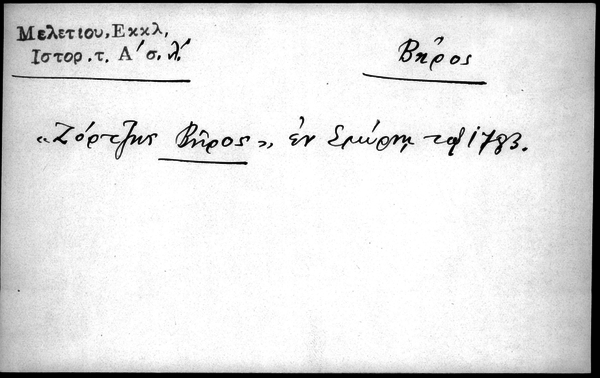 Μελετίου, Εκκλ,
Ιστορ.τ. Α΄ σ. λ΄
Βῆρος
«Ζόρτζης Βῆρος», ἐν Σμύρνῃ τῷ 1783.